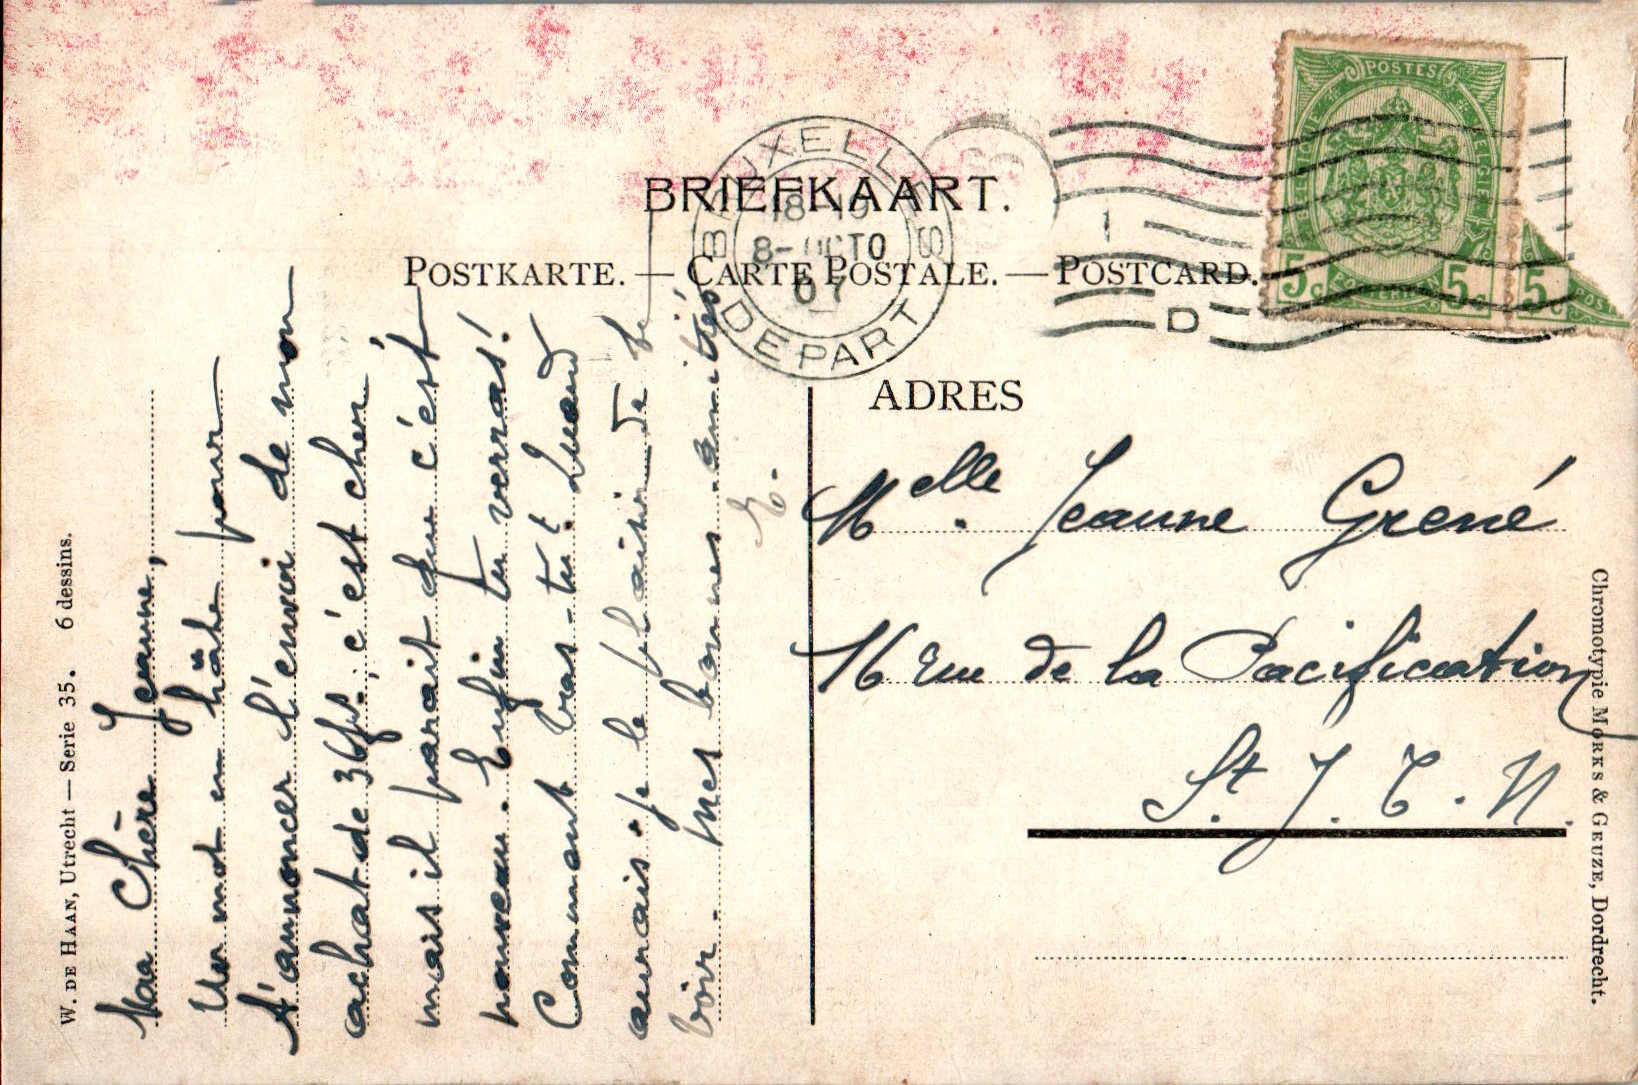 BRIEFKAART.
POSTKARTE. — CARTE POSTALE. — POSTCARD.
BRUXELLES
8-OCTO
07
DEPART
D
POSTES
5c 5c
5c
POS
ADRES
Melle. Jeanne Grené
16 Rue de la Pacification
St. J. T. N.
W. DE HAAN, Utrecht — Serie 35. 6 dessins.
Ma Chère Jeanne,
Un mot en hâte pour
t'annoncer l'envoi de mon
achat de 36fr.; c'est cher
mais il parait que c'est
nouveau. Enfin tu verras!
Comment vas-tu? Quand
aurais-je le plaisir de te
voir. Mes bonnes amitiés
Chromotypie MORKS & GEUZE, Dordrecht.